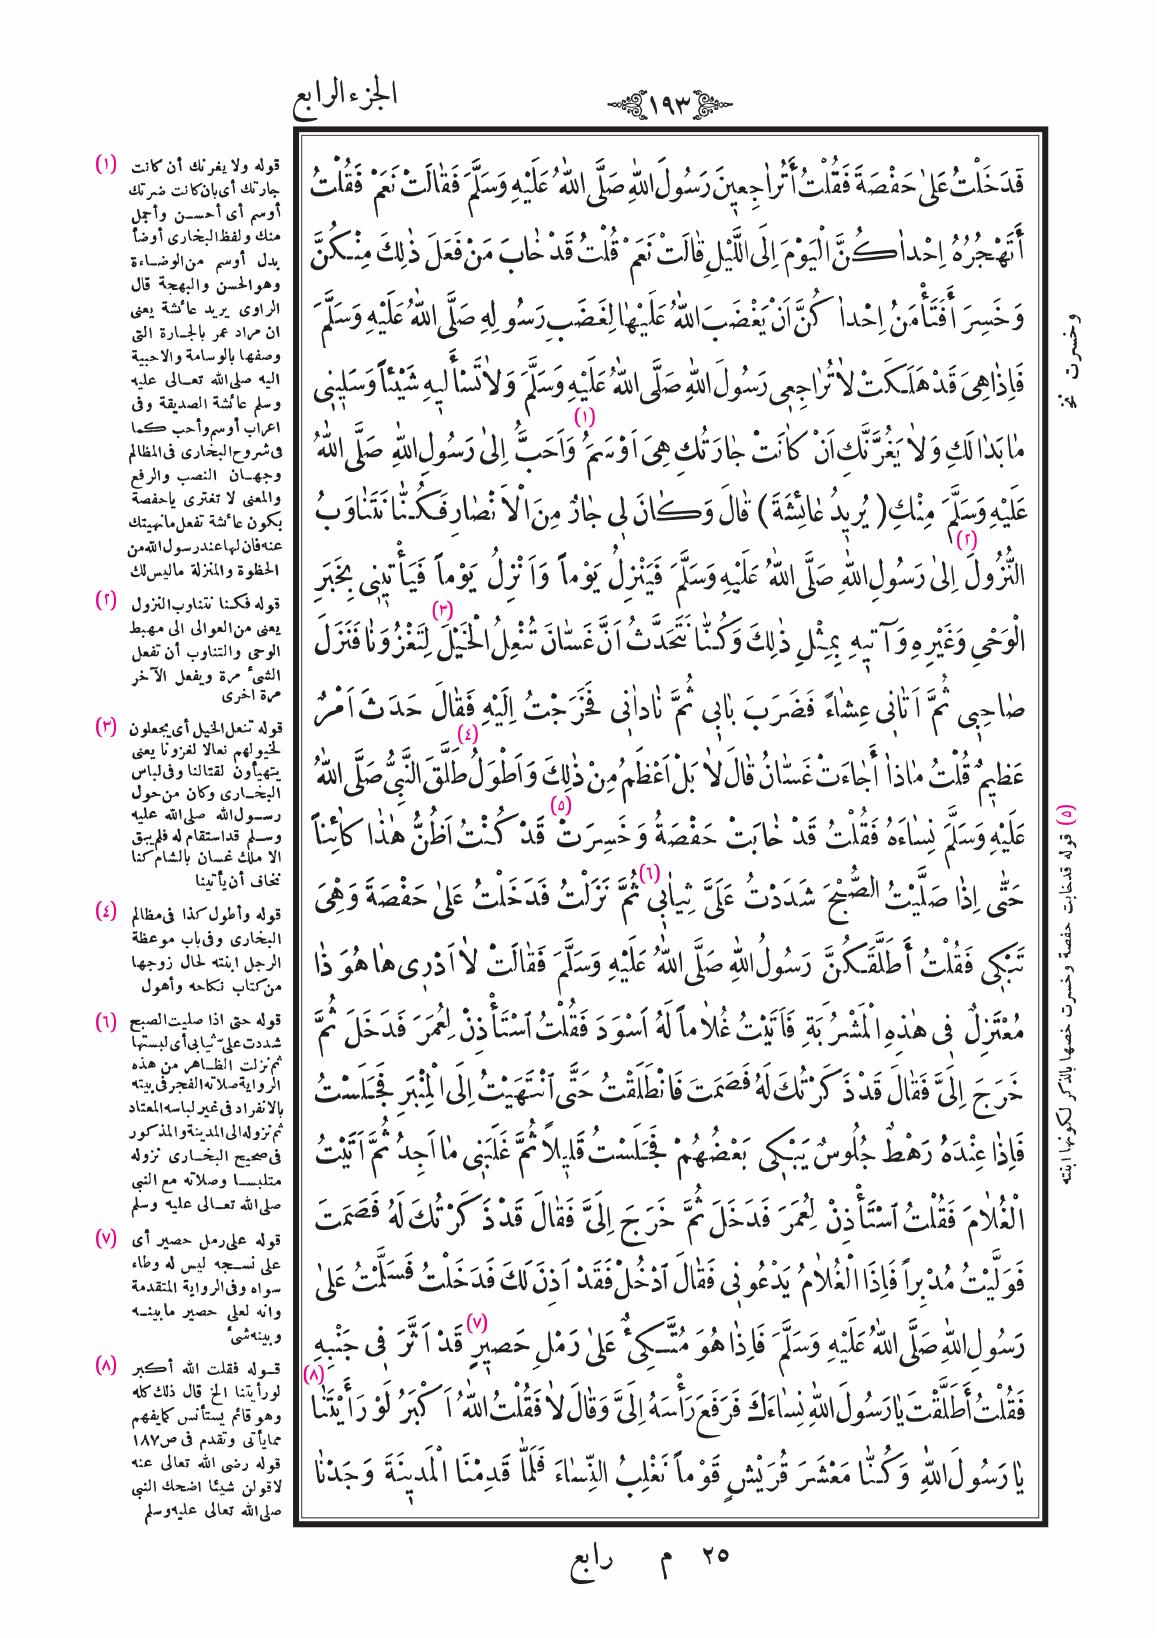 الجزء الرابع
١٩٣
فَدَخَلْتُ عَلىٰ حَفْصَةَ فَقُلْتُ أَتُراٰجِعينَ رَسُولَ اللهِ صَلَّى اللهُ عَلَيْهِ وَسَلَّمَ فَقاٰلَتْ نَعَمْ فَقُلْتُ
أَتَهْجُرُهُ اِحْداٰكُنَّ الْيَوْمَ اِلَى اللَّيْلِ قاٰلَتْ نَعَمْ قُلْتُ قَدْ خاٰبَ مَنْ فَعَلَ ذٰلِكَ مِنْكُنَّ
وَخَسِرَ أَفَتَأْمَنُ اِحْداٰكُنَّ اَنْ يَغْضَبَ اللهُ عَلَيْهاٰ لِغَضَبِ رَسُولِهِ صَلَّى اللهُ عَلَيْهِ وَسَلَّمَ
فَاِذاٰ هِىَ قَدْ هَلَكَتْ لاٰ تُراٰجِعِى رَسُولَ اللهِ صَلَّى اللهُ عَلَيْهِ وَسَلَّمَ وَلاٰ تَسْأَلِيهِ شَيْئاً وَسَلِينِى
(١)
ماٰ بَداٰ لَكِ وَلاٰ يَغُرَّنَّكِ اَنْ كاٰنَتْ جاٰرَتُكِ هِىَ اَوْسَمُ وَاَحَبُّ اِلىٰ رَسُولِ اللهِ صَلَّى اللهُ
عَلَيْهِ وَسَلَّمَ مِنْكِ (يُرِيدُ عاٰئِشَةَ) قاٰلَ وَكاٰنَ لِى جاٰرٌ مِنَ الْاَنْصاٰرِ فَكُنّاٰ نَتَناٰوَبُ
(٢)
النُّزُولَ اِلىٰ رَسُولِ اللهِ صَلَّى اللهُ عَلَيْهِ وَسَلَّمَ فَيَنْزِلُ يَوْماً وَاَنْزِلُ يَوْماً فَيَأْتِينِى بِخَبَرِ
(٣)
الْوَحْىِ وَغَيْرِهِ وَآتِيهِ بِمِثْلِ ذٰلِكَ وَكُنّاٰ نَتَحَدَّثُ اَنَّ غَسّاٰنَ تُنْعِلُ الْخَيْلَ لِتَغْزُوَناٰ فَنَزَلَ
صاٰحِبِى ثُمَّ اَتاٰنِى عِشاٰءً فَضَرَبَ باٰبِى ثُمَّ ناٰداٰنِى فَخَرَجْتُ اِلَيْهِ فَقاٰلَ حَدَثَ اَمْرٌ
(٤)
عَظِيمٌ قُلْتُ ماٰذاٰ أَجاٰءَتْ غَسّاٰنُ قاٰلَ لاٰ بَلْ اَعْظَمُ مِنْ ذٰلِكَ وَاَطْوَلُ طَلَّقَ النَّبِىُّ صَلَّى اللهُ
(۵)
عَلَيْهِ وَسَلَّمَ نِساٰءَهُ فَقُلْتُ قَدْ خاٰبَتْ حَفْصَةُ وَخَسِرَتْ قَدْ كُنْتُ اَظُنُّ هٰذاٰ كاٰئِناً
(٦)
حَتّٰى اِذاٰ صَلَّيْتُ الصُّبْحَ شَدَدْتُ عَلَىَّ ثِياٰبِى ثُمَّ نَزَلْتُ فَدَخَلْتُ عَلىٰ حَفْصَةَ وَهْىَ
تَبْكِى فَقُلْتُ أَطَلَّقَكُنَّ رَسُولُ اللهِ صَلَّى اللهُ عَلَيْهِ وَسَلَّمَ فَقاٰلَتْ لاٰ اَدْرِى هاٰ هُوَ ذاٰ
مُعْتَزِلٌ فِى هٰذِهِ الْمَشْرُبَةِ فَاَتَيْتُ غُلاٰماً لَهُ اَسْوَدَ فَقُلْتُ اسْتَأْذِنْ لِعُمَرَ فَدَخَلَ ثُمَّ
خَرَجَ اِلَىَّ فَقاٰلَ قَدْ ذَكَرْتُكَ لَهُ فَصَمَتَ فَانْطَلَقْتُ حَتّٰى انْتَهَيْتُ اِلَى الْمِنْبَرِ فَجَلَسْتُ
فَاِذاٰ عِنْدَهُ رَهْطٌ جُلُوسٌ يَبْكِى بَعْضُهُمْ فَجَلَسْتُ قَلِيلاً ثُمَّ غَلَبَنِى ماٰ اَجِدُ ثُمَّ اَتَيْتُ
الْغُلاٰمَ فَقُلْتُ اسْتَأْذِنْ لِعُمَرَ فَدَخَلَ ثُمَّ خَرَجَ اِلَىَّ فَقاٰلَ قَدْ ذَكَرْتُكَ لَهُ فَصَمَتَ
فَوَلَّيْتُ مُدْبِراً فَاِذَا الْغُلاٰمُ يَدْعُونِى فَقاٰلَ ادْخُلْ فَقَدْ اَذِنَ لَكَ فَدَخَلْتُ فَسَلَّمْتُ عَلىٰ
(٧)
رَسُولِ اللهِ صَلَّى اللهُ عَلَيْهِ وَسَلَّمَ فَاِذاٰ هُوَ مُتَّكِىءٌ عَلىٰ رَمْلِ حَصِيرٍ قَدْ اَثَّرَ فِى جَنْبِهِ
(٨)
فَقُلْتُ أَطَلَّقْتَ ياٰ رَسُولَ اللهِ نِساٰءَكَ فَرَفَعَ رَأْسَهُ اِلَىَّ وَقاٰلَ لاٰ فَقُلْتُ اللهُ اَكْبَرُ لَوْ رَأَيْتَناٰ
ياٰ رَسُولَ اللهِ وَكُنّاٰ مَعْشَرَ قُرَيْشٍ قَوْماً نَغْلِبُ النِّساٰءَ فَلَمّاٰ قَدِمْنَا الْمَدِينَةَ وَجَدْناٰ
(١) قوله ولا يغرنك أن كانت
جارتك أى بان كانت ضرتك
أوسم أى أحسن وأجمل
منك ولفظ البخارى أوضأ
بدل أوسم من الوضاءة
وهو الحسن والبهجة قال
الراوى يريد عائشة يعنى
ان مراد عمر بالجارة التى
وصفها بالوسامة والاحبية
اليه صلى الله تعالى عليه
وسلم عائشة الصديقة وفى
اعراب أوسم وأحب كما
فى شروح البخارى فى المظالم
وجهان النصب والرفع
والمعنى لا تغترى يا حفصة
بكون عائشة تفعل ما نهيتك
عنه فان لها عند رسول الله من
الحظوة والمنزلة ما ليس لك
(٢) قوله فكنا نتناوب النزول
يعنى من العوالى الى مهبط
الوحى والتناوب أن تفعل
الشئ مرة ويفعل الآخر
مرة اخرى
(٣) قوله تنعل الخيل أى يجعلون
لخيولهم نعالا لغزونا يعنى
يتهيأون لقتالنا وفى لباس
البخارى وكان من حول
رسول الله صلى الله عليه
وسلم قد استقام له فلم يبق
الا ملك غسان بالشام كنا
نخاف أن يأتينا
(٤) قوله وأطول كذا فى مظالم
البخارى وفى باب موعظة
الرجل ابنته لحال زوجها
من كتاب نكاحه وأهول
(٦) قوله حتى اذا صليت الصبح
شددت علىّ ثيابى أى لبستها
ثم نزلت الظاهر من هذه
الرواية صلاته الفجر فى بيته
بالانفراد فى غير لباسه المعتاد
ثم نزوله الى المدينة والمذكور
فى صحيح البخارى نزوله
متلبسا وصلاته مع النبى
صلى الله تعالى عليه وسلم
(٧) قوله على رمل حصير أى
على نسجه ليس له وطاء
سواه وفى الرواية المتقدمة
وانه لعلى حصير ما بينه
وبينه شئ
(٨) قوله فقلت الله أكبر
لو رأيتنا الخ قال ذلك كله
وهو قائم يستأنس كما يفهم
مما يأتى وتقدم فى ص ١٨٧
قوله رضى الله تعالى عنه
لاقولن شيئا اضحك النبى
صلى الله تعالى عليه وسلم
وخسرت نخ
(۵) قوله قد خابت حفصة وخسرت خصها بالذكر لكونها ابنته
٢٥ م رابع